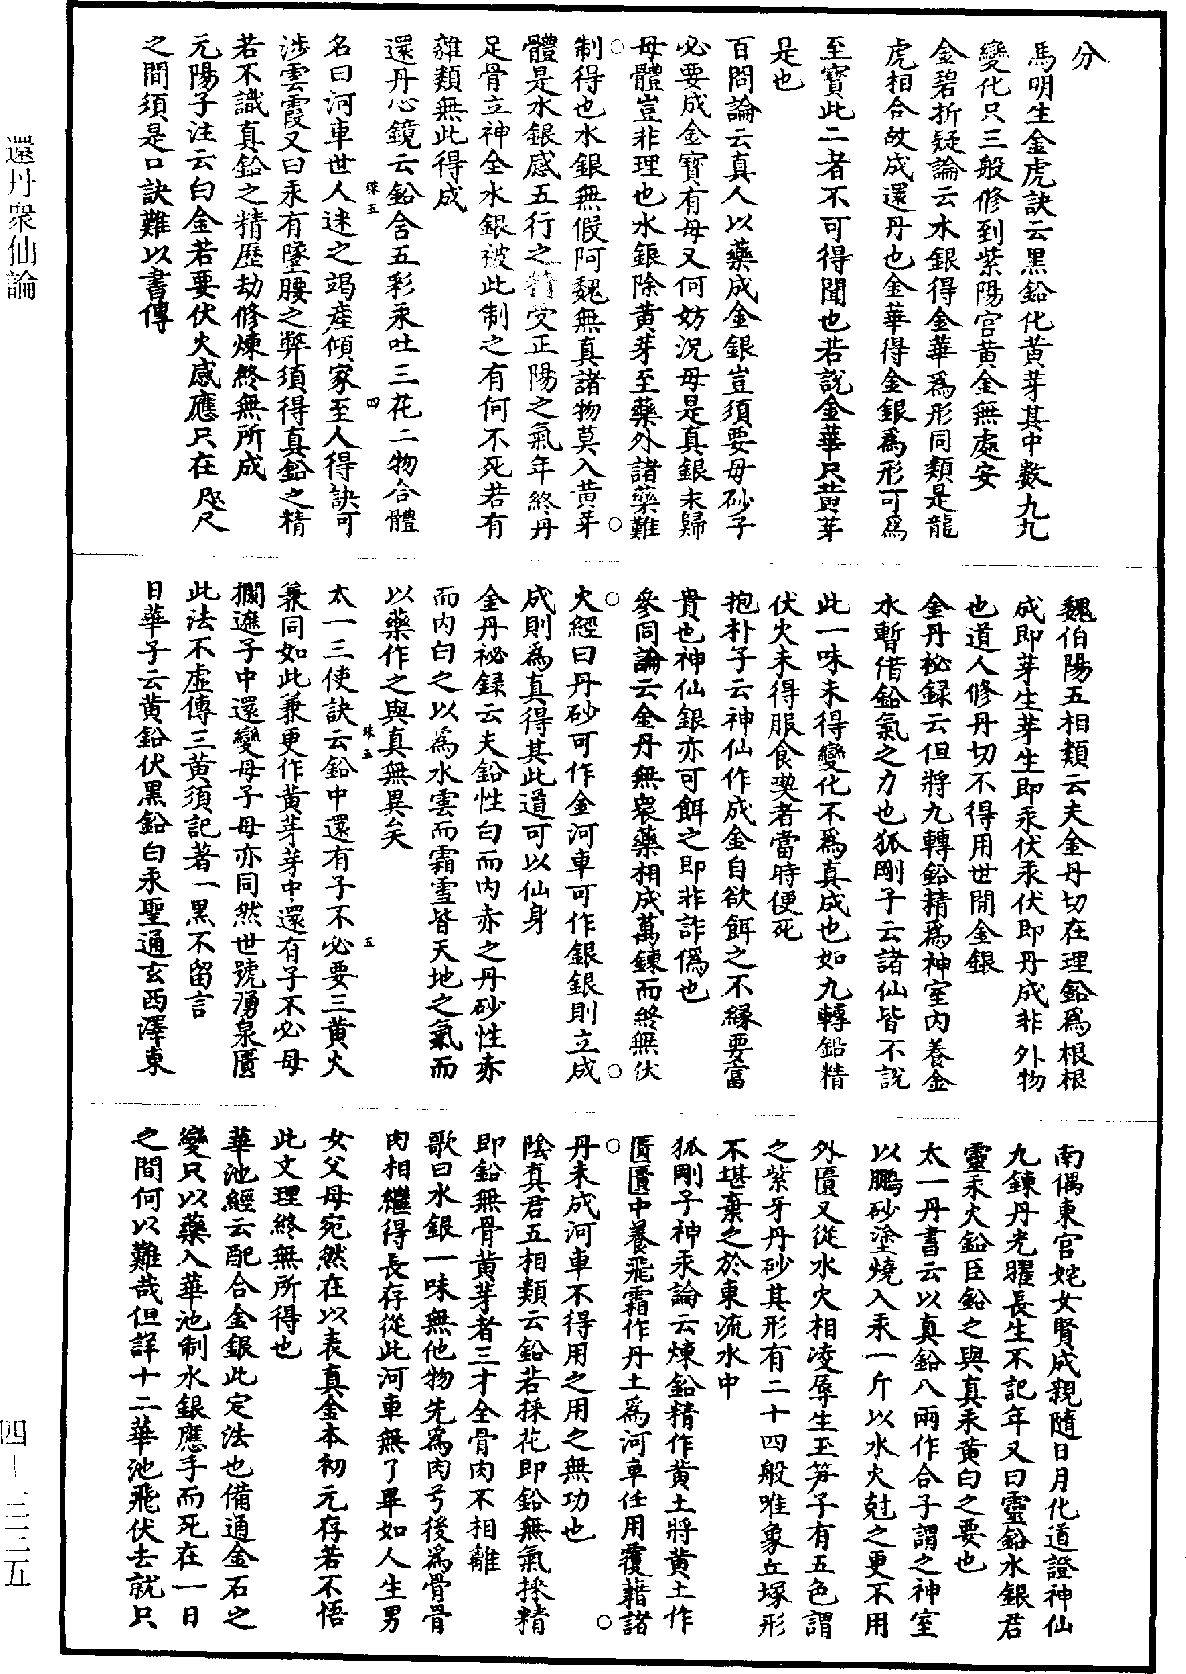 分
馬明生金虎訣云黑鉛化黃芽其中數九九
變化只三般修到紫陽宮黃金無處安
金碧折疑論云水銀得金華爲形同類是龍
虎相合故成還丹也金華得金銀爲形可爲
至寶此二者不可得聞也若說金華只黃芽
是也
百問論云真人以藥成金銀豈須要母砂子
必要成金寶有母又何妨況母是真銀未歸
母體豈非理也水銀除黃芽至藥外諸藥難
制得也水銀無假阿魏無真諸物莫入黃芽
體是水銀感五行之精受正陽之氣年終丹
足骨立神全水銀被此制之有何不死若有
雜類無此得成
還丹心鏡云鉛含五彩汞吐三花二物合體
名曰河車世人迷之竭產傾家至人得訣可
涉雲霞又曰汞有墜腰之弊須得真鉛之精
若不識真鉛之精歷劫修煉終無所成
元陽子注云白金若要伏火感應只在咫尺
之間須是口訣難以書傳
魏伯陽五相類云夫金丹切在理鉛爲根根
成即芽生芽生即汞伏汞伏即丹成非外物
也道人修丹切不得用世間金銀
金丹祕録云但將九轉鉛精爲神室內養金
水暫借鉛氣之力也狐剛子云諸仙皆不說
此一味未得變化不爲真成也如九轉鉛精
伏火未得服食喫者當時便死
抱朴子云神仙作成金自欲餌之不縁要富
貴也神仙銀亦可餌之即非詐僞也
參同論云金丹無衆藥相成萬鍊而終無伏
火經曰丹砂可作金河車可作銀銀則立成
成則爲真得其此道可以仙身
金丹祕録云夫鉛性白而內赤之丹砂性赤
而內白之以爲水雲而霜雪皆天地之氣而
以藥作之與真無異矣
太一三使訣云鉛中還有子不必要三黃火
兼同如此兼更作黃芽芽中還有子不必母
攔進子中還變母子母亦同然世號湧泉匱
此法不虛傳三黃須記著一黑不留言
日華子云黃鉛伏黑鉛白汞聖通玄西澤東
南偶東宮姹女賢成親隨日月化道證神仙
九鍊丹光曜長生不記年又曰靈鉛水銀君
靈汞火鉛臣鉛之與真汞黃白之要也
太一丹書云以真鉛八兩作合子謂之神室
以鵬砂塗燒入汞一斤以水火尅之更不用
外匱又從水火相凌辱生玉笋子有五色謂
之紫牙丹砂其形有二十四般唯象丘塚形
不堪棄之於東流水中
狐剛子神汞論云煉鉛精作黃土將黃土作
匱匱中養飛霜作丹土爲河車任用覆藉諸
丹未成河車不得用之用之無功也
陰真君五相類云鉛若採花即鉛無氣採精
即鉛無骨黃芽者三才全骨肉不相離
歌曰水銀一味無他物先爲肉兮後爲骨骨
肉相繼得長存從此河車無了畢如人生男
女父母宛然在以表真金本初元存若不悟
此文理終無所得也
華池經云配合金銀此定法也備通金石之
變只以藥入華池制水銀應手而死在一日
之間何以難哉但詳十二華池飛伏去就只
還丹衆仙論
四—三三五